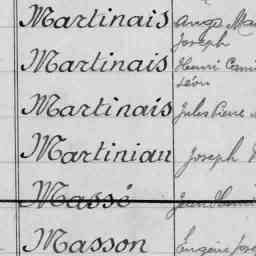 Martinais Ange
Joseph
Martinais Henri
Léon
Martinais Jules Pierre
Martiniau Joseph
Massé Jean
Masson Eugène